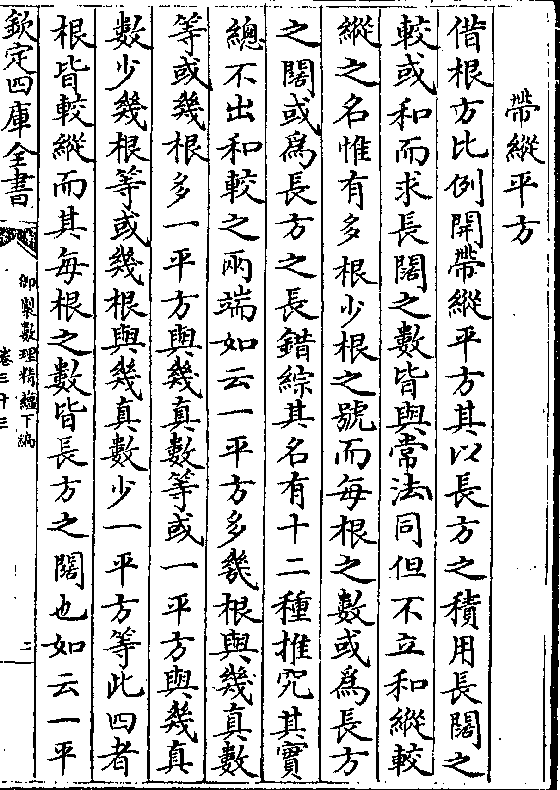 帶縱平方
借根方比例開帶縱平方其以長方之積用長闊之
較或和而求長闊之數皆與常法同但不立和縱較
縱之名惟有多根少根之號而每根之數或爲長方
之闊或爲長方之長錯綜其名有十二種推究其實
總不出和較之兩端如云一平方多幾根與幾真數
等或幾根多一平方與幾真數等或一平方與幾真
數少幾根等或幾根與幾真數少一平方等此四者
根皆較縱而其每根之數皆長方之闊也如云一平
欽定四庫全書
御製數理精蘊下編
卷三十三
二